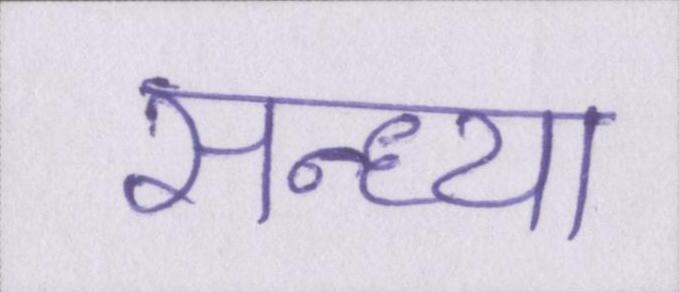 सन्ध्या